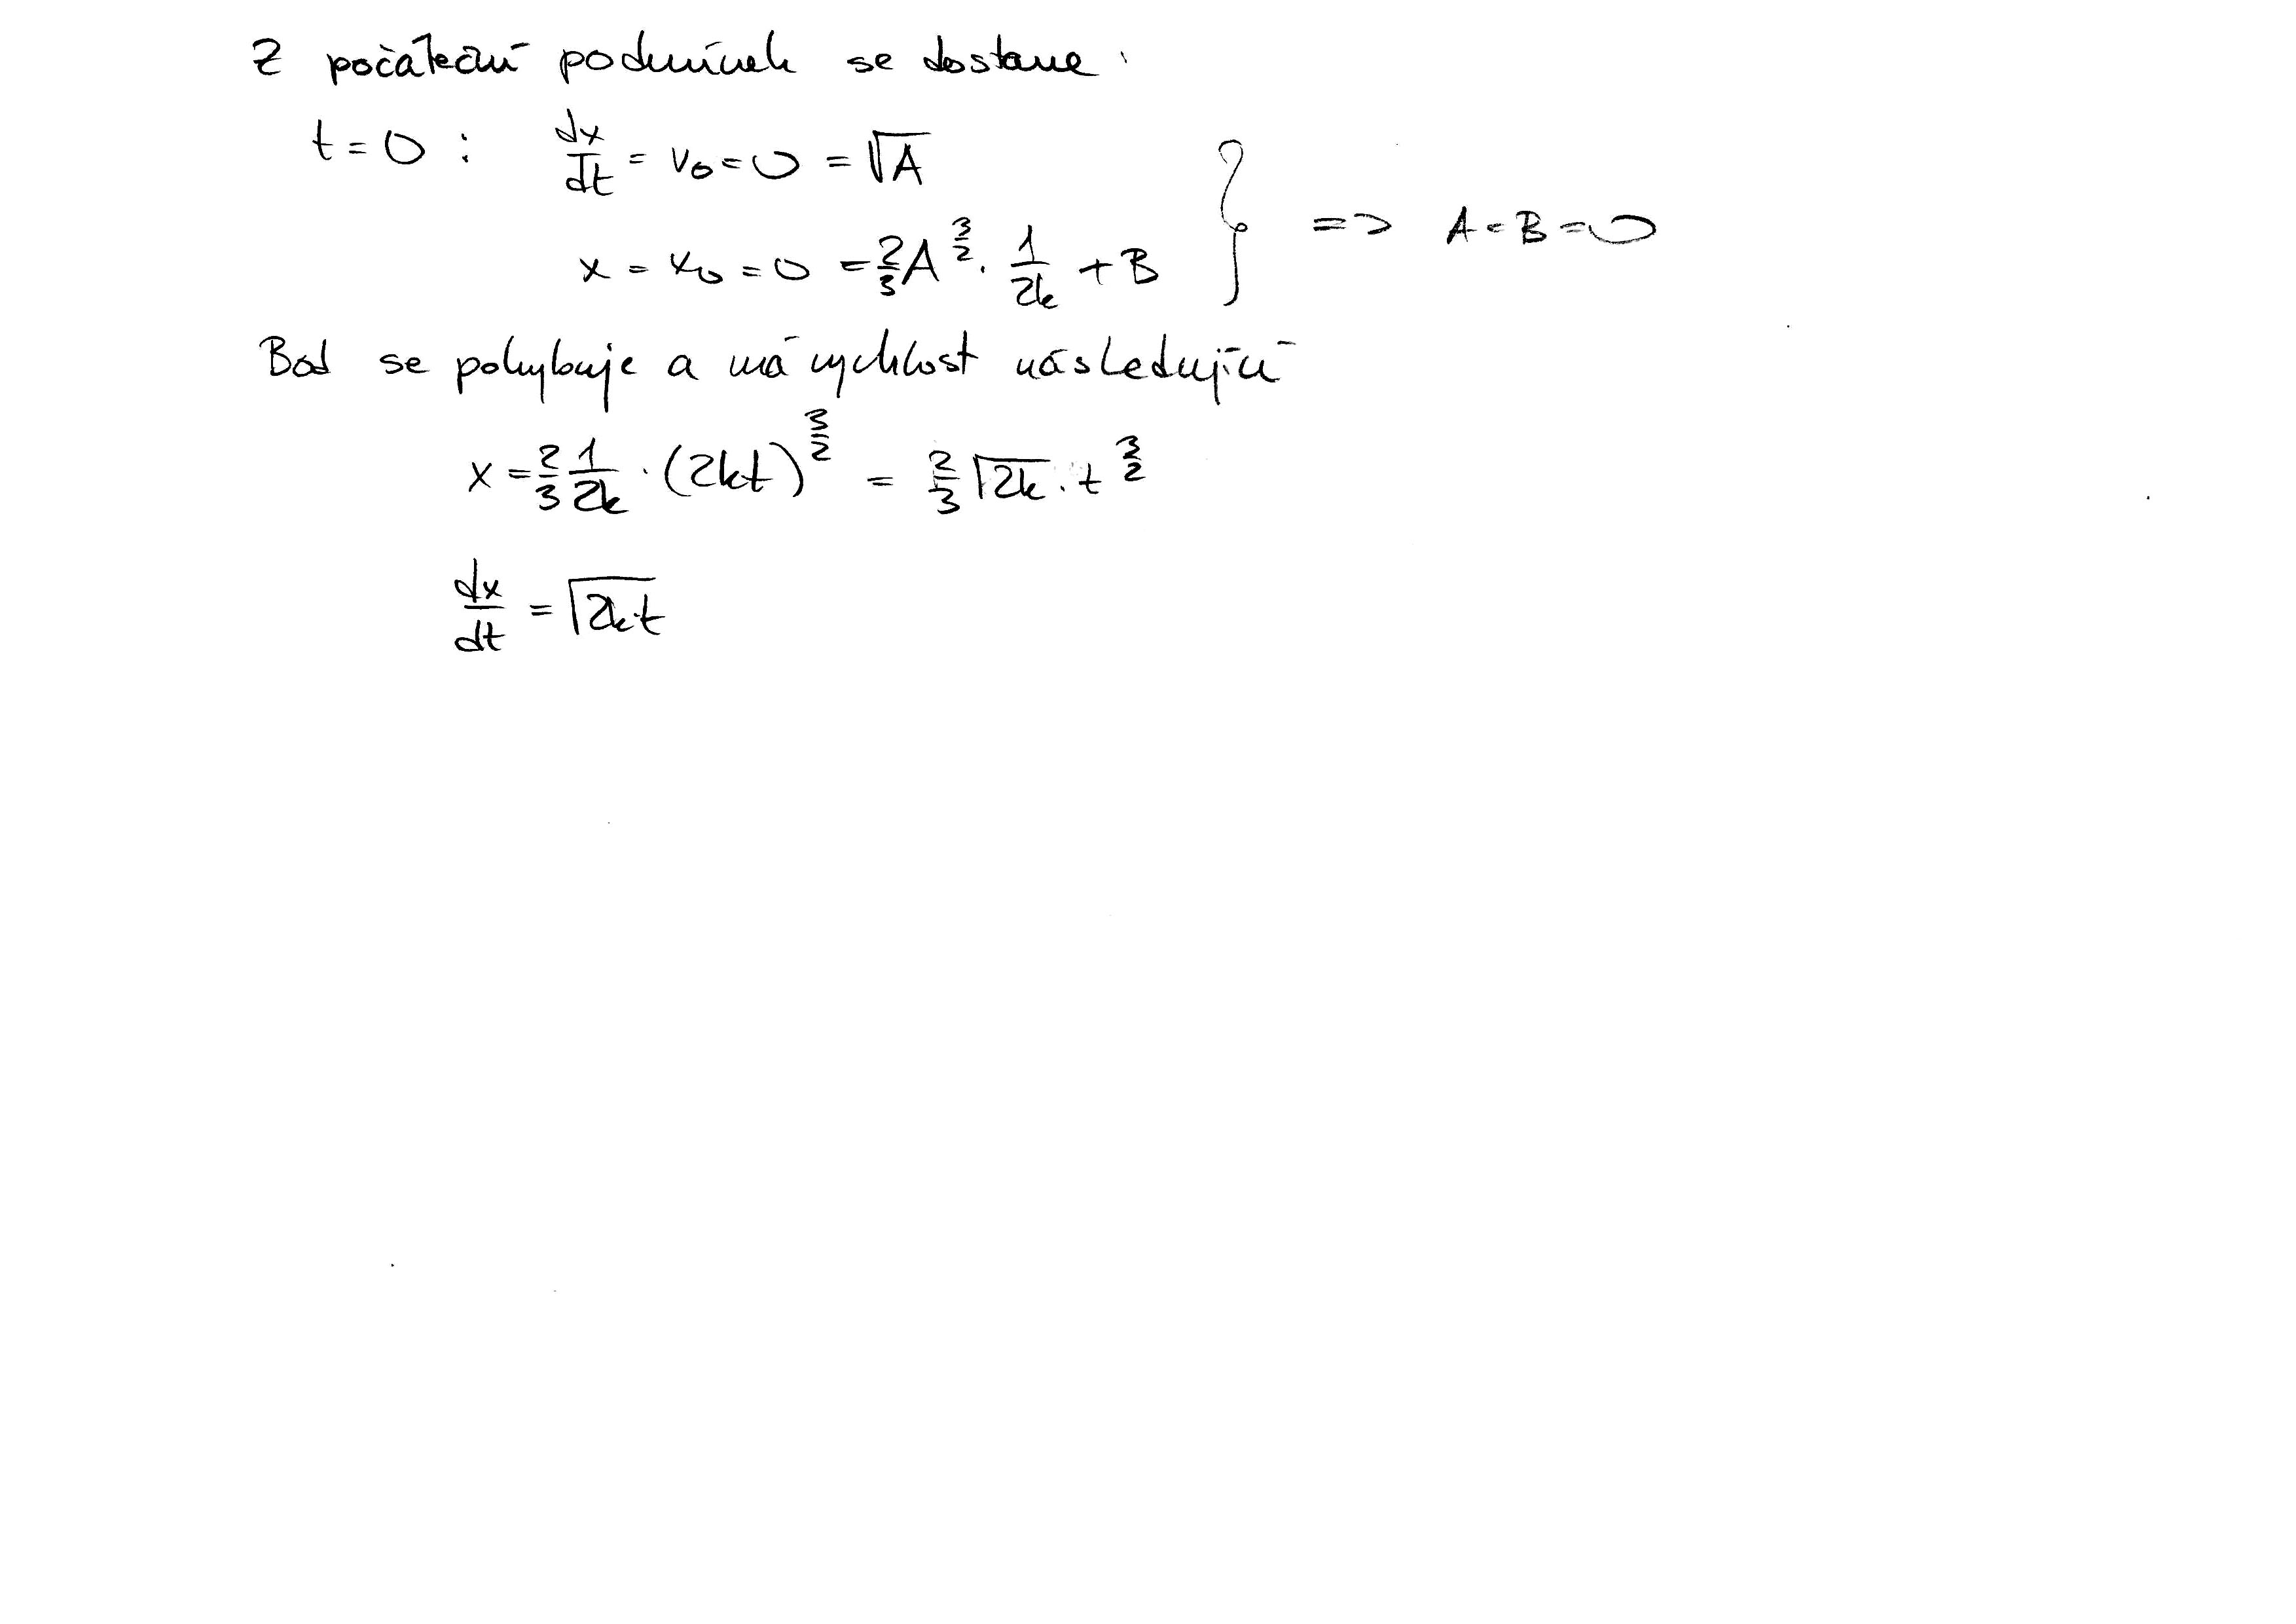 Z počáteční podmínek se dostane :
t = 0 : dx/dt = v₀ = 0 = √A
x = x₀ = 0 = 2/3 A^(3/2) · 1/2k + B } => A = B = 0
Bod se pohybuje a má rychlost následující
x = 2/3 1/2k · (2kt)^(3/2) = 2/3 √2k · t^(3/2)
dx/dt = √2kt